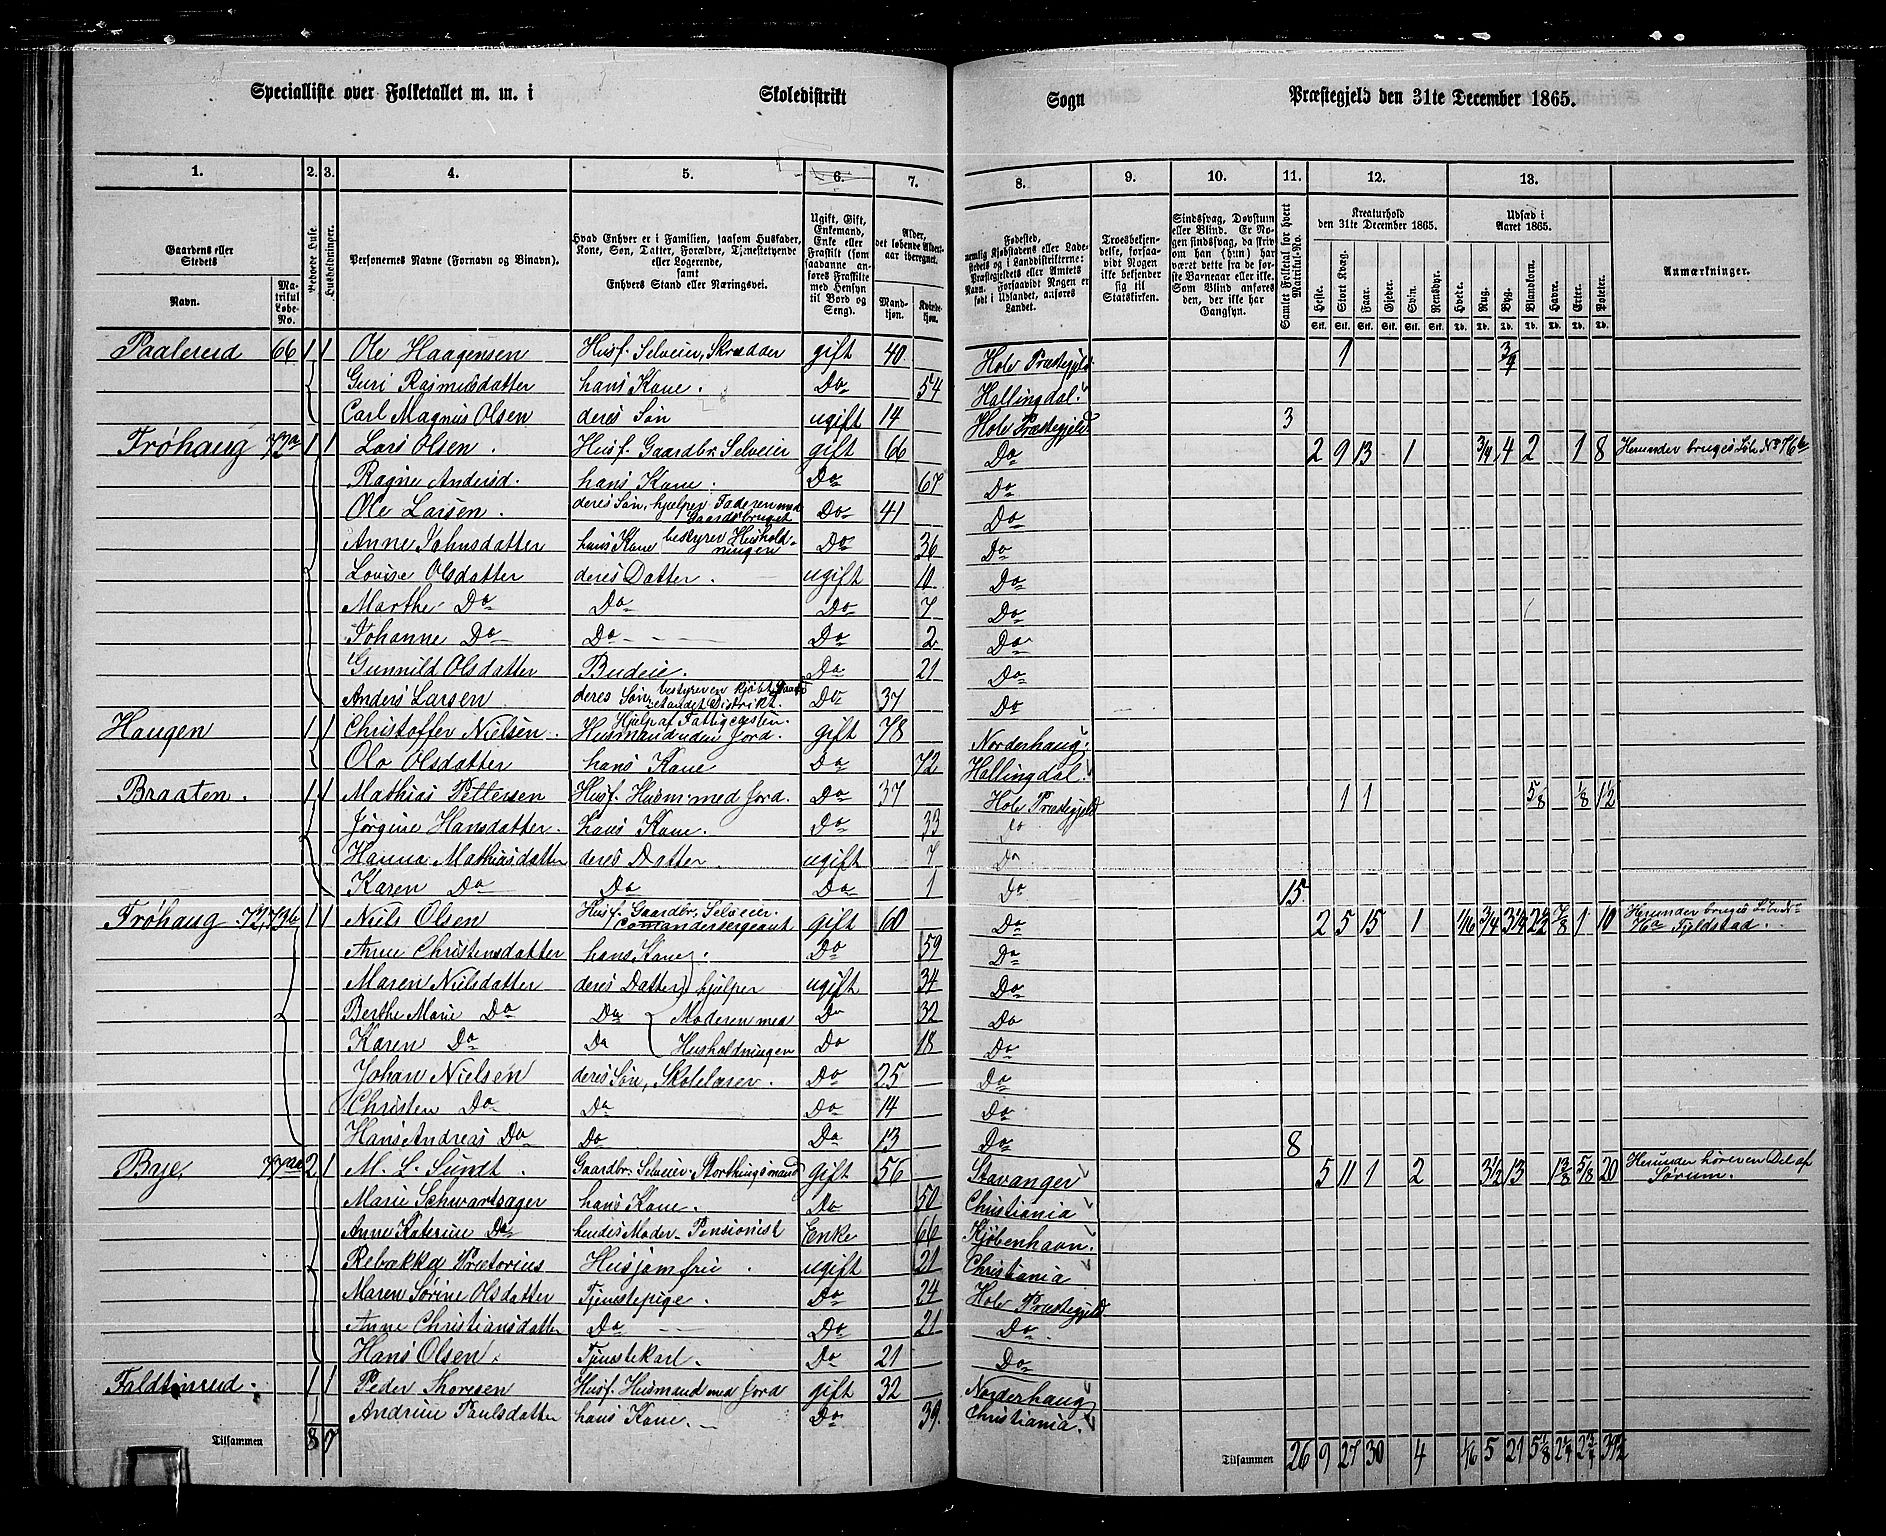 Specialliste over Folketallet m. m. i Skoledistrikt Sogn Præstegjeld den 31te December 1865.
1. 2. 3. 4. 5. 6. 7. 8. 9. 10. 11. 12. 13.
Gaardens eller Stedets Navn. Matrikul Løbe-No. Beboede Huse. Husholdninger. Personernes Navne (Fornavn og Binavn). Hvad Enhver er i Familien, saasom Husfader, Kone, Søn, Datter, Forældre, Tjenestetyende eller Logerende, samt Enhvers Stand eller Næringsvei. Ugift, Gift, Enkemand, Enke eller Fraskilt (som saadanne anføres med Fraskilte med Hensyn til Bord og Seng). Alder, det løbende Alders-aar iberegnet. Mandkjøn. Kvindekjøn.
Fødested, Troesbekjendelse, forsaavidt Nogen ikke bekjender sig til Statskirken. Sindssvag, Døvstum eller Blind. Samlet Folketal for hvert Matrikul-No. Kreaturhold den 31te December 1865. Heste. Stort Kvæg. Faar. Gjeder. Svin. Rensdyr. Udsæd i Aaret 1865. Hvede. Rug. Byg. Blandkorn. Havre. Erter. Poteter. Anmærkninger.
Paalerud 66 1 1 Ole Haagensen Husf. Selveier, Skrædder gift 40 Hole Præstegjeld 1 3/4
Guri Rasmusdatter hans Kone. Do 54 Hallingdal.
Carl Magnus Olsen deres Søn ugift 14 Hole Præstegjeld 3
Frøhaug 73a 1 1 Lars Olsen. Husf. Gaardbr. Selveier gift 66 Do 2 9 13 1 3/4 4 2 1 8 Herunder bruges Løb. No 76b
Ragne Andersd. hans Kone. Do 67 Do
Ole Larsen. deres Søn, hjælper Faderen med Gaardsbruget Do 41 Do
Anne Johnsdatter hans Kone bestyrer Husholdningen Do 36 Do
Lovise Olsdatter deres Datter. ugift 10 Do
Marthe Do Do Do 7 Do
Johanne Do Do Do 2 Do
Gunnild Olsdatter Budeie. Do 21 Do
Anders Larsen deres Søn bestyrer en kjøbt Gaard i et andet Distrikt. Do 37 Do
Haugen 1 1 Christoffer Nielsen. Hjelp af Fattigcassen. Husmand uden Jord. gift 78 Norderhaug.
Olo Olsdatter hans Kone Do 72 Hallingdal.
Braaten. 1 1 Mathias Pettersen Husf. Husm. med Jord. Do 37 Hole Præstegjeld 1 1 5/8 1/8 1 1/2
Jørgine Hansdatter. hans Kone. Do 33 Do
Hanna Mathiasdatter deres Datter. ugift 7 Do
Karen Do Do Do 1 Do 15
Frøhaug 72, 73b 1 1 Niels Olsen Husf. Gaardbr. Selveier. Comandersergeant gift 60 Do 2 5 15 1 1/16 3/4 3 1/4 2 1/2 7/8 1 10 Herunder bruges Løbe No 76a Fjeldstad.
Anne Christensdatter hans Kone. Do 59 Do
Maren Nielsdatter deres Datter hjelper ugift 34 Do
Berthe Marie Do Do Moderen med Do 32 Do
Karen Do Do Husholdningen Do 18 Do
Johan Nielsen deres Søn, Skolelærer. Do 25 Do
Christen Do Do Do 14 Do
Hans Andreas Do Do Do 13 Do 8
Bye 77aa 2 1 M. L. Sundt. Gaardbr. Selveier. Storthingsmand gift 56 Stavanger 5 11 1 2 3 1/2 13 1 3/8 5/8 20 Herunder hører en Del af Sørum.
Marie Schwartsager hans Kone. Do 50 Christiania
Anne Katerine Do hendes Moder. Pensionist Enke 66 Kjøbenhavn.
Rebekka Prætorius Husjomfrue ugift 21 Christiania
Maren Sørine Olsdatter Tjenestepige. Do 24 Hole Præstegjeld
Anne Christiansdatter Do Do 21 Do
Hans Olsen. Tjenestekarl. Do 21 Do
Faldtinrud. 1 1 Peder Thoresen Husf. Husmand med Jord gift 32 Norderhaug
Andrine Paulsdatter hans Kone. Do 39. Christiania.
Tilsammen 8 7 Tilsammen 26 9 27 30 4 1/16 5 21 5 1/8 2 1/4 2 3/4 39 1/2